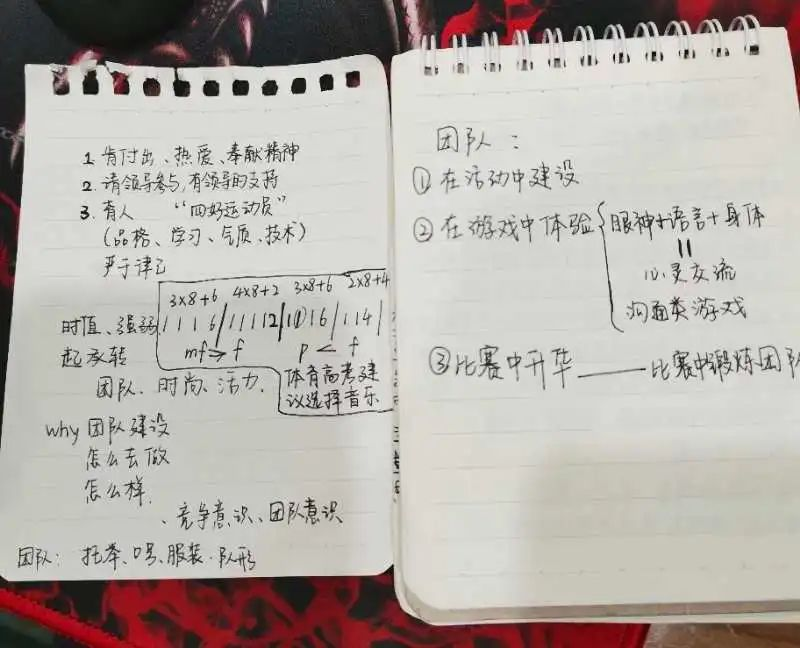 1. 肯付出、热爱、奉献精神
2. 请领导参与,有领导的支持
3. 有人 “四好运动员”
(品格、学习、气质、技术)
严于律己
3x8+6 4x8+2 3x8+6 2x8+4
时值、强弱 1 1 1 6/1 1 1 1 2/1 1 1 6/1 1 4/
起承转 mf⇒f p<f
团队、时尚、活力.
体育高考建
议选择音乐
why 团队建设
怎么去做
怎么样
、竞争意识、团队意识
团队: 托举、口号、服装、队形
团队:
① 在活动中建设
② 在游戏中体验 眼神+语言+身体
=
心灵交流
沟通类游戏
③ 比赛中升华——比赛中锻炼团队